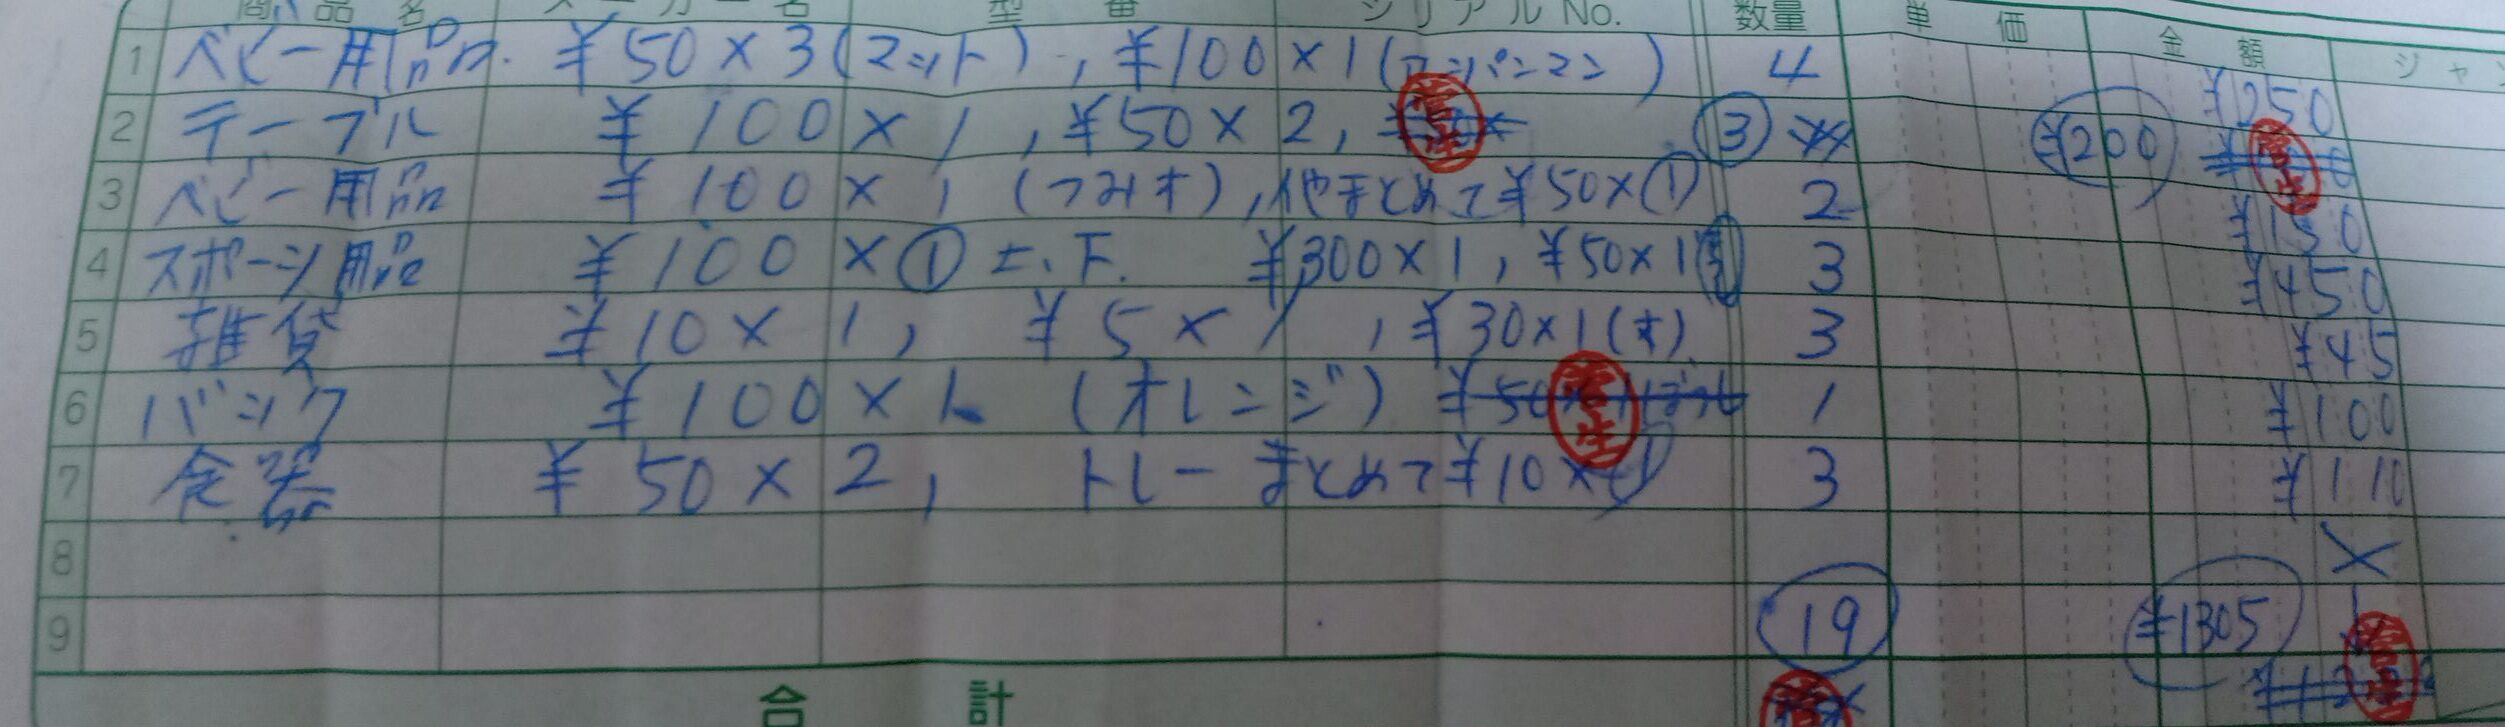 商品名 メーカー名 型番 シリアルNo. 数量 単価 金額
1 ベビー用品 ¥50×3(マット), ¥100×1(アンパンマン) 4 ¥250
2 テーブル ¥100×1, ¥50×2, ③ ¥200
3 ベビー用品 ¥100×1 (つみき), まとめて¥50×① 2 ¥150
4 スポーツ用品 ¥100×① 上、下. ¥300×1, ¥50×1 3 ¥450
5 雑貨 ¥10×1, ¥5×1, ¥30×1(大) 3 ¥45
6 バック ¥100×1 (オレンジ) 1 ¥100
7 食器 ¥50×2, トレーまとめて¥10×① 3 ¥110
8
9 19 ¥1305
合計